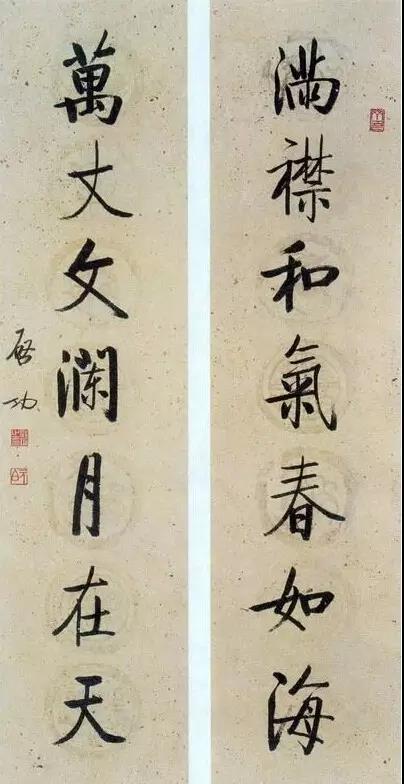 满襟和氣春如海
萬丈文瀾月在天
啓功